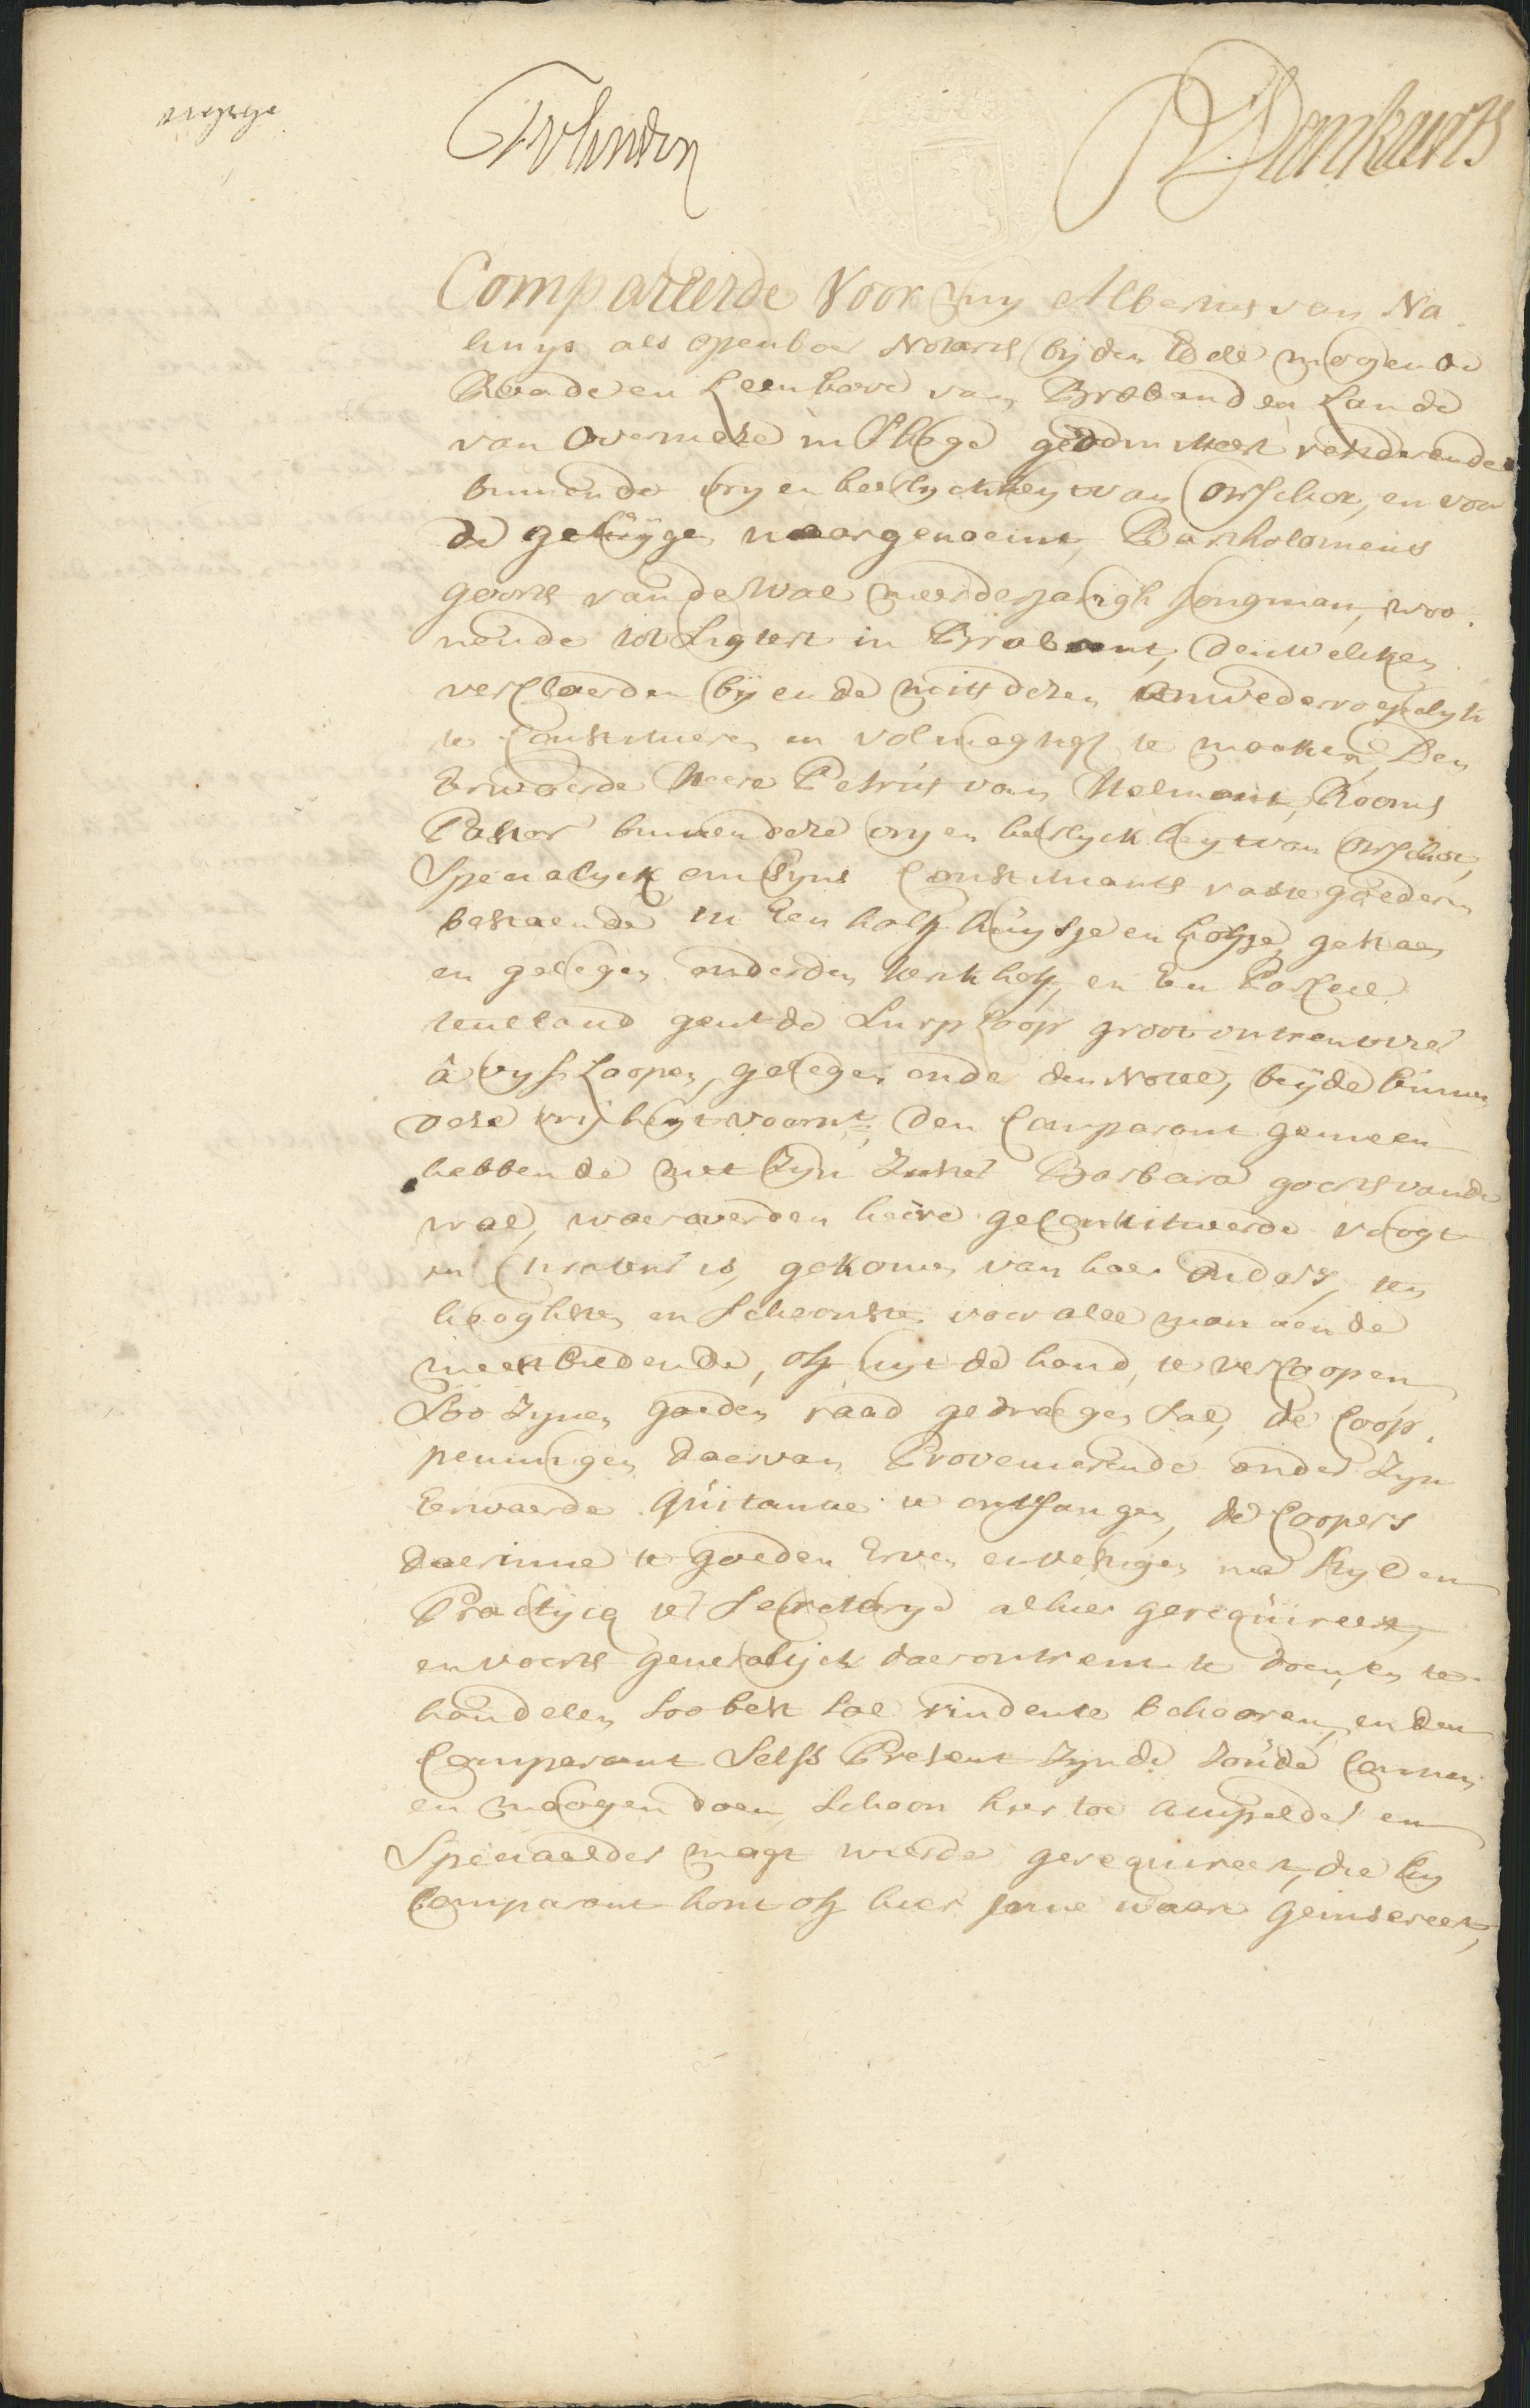 Compareerde Voor mij Albertus van Na
huys als openbaar Notaris bij den Edele mogende
Raade en Leenhove van Braband en Lande
van Overmase in S'Hage geadmitteert resideerende
binnen de vry en heerlyckheyt van Oirschot, en voor
de getuÿge naargenoemt, Bartholomeus
Goorts van de Wal meerderjarigh Jongman, woo
nende tot Ligtert in Brabant, denwelcken
verclaerden bÿ en de mitsdesen onwederroepelyk
te Constitueren en volmagtigh te maaken, Den
Eerwaerde Heere Petrus van Helmont, Rooms
Pastor binnen dese vry en heerlyckheyt van Oirschot,
Specialyck om syns Constituants vaste goederen
bestaende in Een half huÿsje en hofje, gestaen
en gelegen onder den kerkhof, en Een Parceel
teulland gent de Lurploop groot ontrent vier
â vyf Loopen, gelegen onder den Notel, beÿde binnen
dese vrijheyt voornt, Den Comparant gemeen
hebbende met Zijn Zuster Barbara Goorts vande
wal, waerover den heere geConstitueerde voogt
en Curateur is, gekomen van haer Ouders, ten
hooghsten en Schoonsten voor alle man aen de
meestbiedende, of uyt de hand, te verkoopen
Soo Zynen goeden raad gedraegen sal, de Coop
penningen daervan Provenierende onder Zyn
Eerwaerde Quitantie te ontfangen, de Coopers
daerinne te goeden Erven en vestigen na stijl en
Practijcq ter Secretarye alhier gerequireert,
en voorts generalijck daerontrent te doen, en te
handelen Soo best sal vinden te behooren, en den
Comparant Selfs Present Zynde Zoude Connen
en moogen doen, Schoon hier toe ampelder en
Speciaelder magt wierde gerequireert, die hy
Comparant hout of hier inne waere geinsereert,